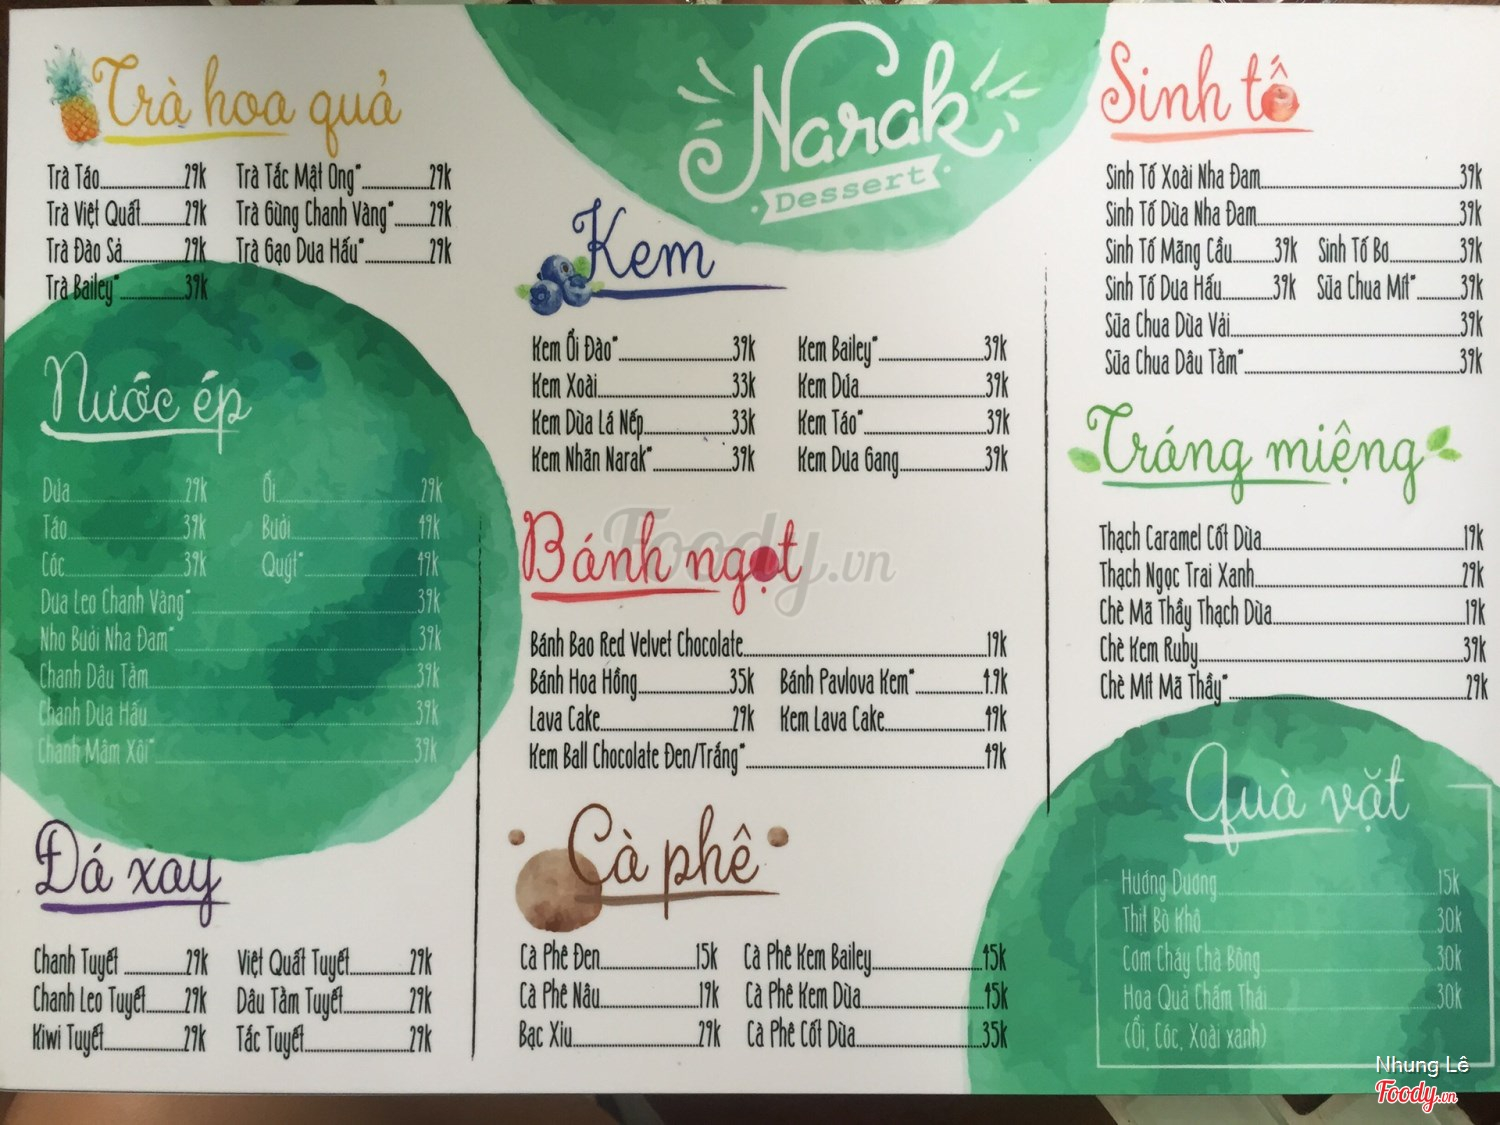 Narak
Dessert
Trà hoa quả
Trà Táo 29k
Trà Việt Quất 29k
Trà Đào Sả 29k
Trà Bailey* 39k
Trà Tắc Mật Ong* 29k
Trà Gừng Chanh Vàng* 29k
Trà Gạo Dưa Hấu* 29k
Nước ép
Dứa 29k
Táo 39k
Cóc 39k
Ổi 29k
Bưởi 49k
Quýt* 49k
Dưa Leo Chanh Vàng* 39k
Nho Bưởi Nha Đam* 39k
Chanh Dâu Tằm 39k
Chanh Dưa Hấu 39k
Chanh Mâm Xôi* 39k
Đá xay
Chanh Tuyết 29k
Chanh Leo Tuyết 29k
Kiwi Tuyết 29k
Việt Quất Tuyết 29k
Dâu Tằm Tuyết 29k
Tắc Tuyết 29k
Kem
Kem Ổi Đào* 39k
Kem Xoài 33k
Kem Dừa Lá Nếp 33k
Kem Nhãn Narak* 39k
Kem Bailey* 39k
Kem Dứa 39k
Kem Táo* 39k
Kem Dưa Gang 39k
Bánh ngọt
Bánh Bao Red Velvet Chocolate 19k
Bánh Hoa Hồng 35k
Lava Cake 29k
Bánh Pavlova Kem* 4.9k
Kem Lava Cake 49k
Kem Ball Chocolate Đen/Trắng* 49k
Cà phê
Cà Phê Đen 15k
Cà Phê Nâu 19k
Bạc Xỉu 29k
Cà Phê Kem Bailey 45k
Cà Phê Kem Dừa 45k
Cà Phê Cốt Dừa 35k
Sinh tố
Sinh Tố Xoài Nha Đam 39k
Sinh Tố Dừa Nha Đam 39k
Sinh Tố Mãng Cầu 39k
Sinh Tố Bơ 39k
Sinh Tố Dưa Hấu 39k
Sữa Chua Mít* 39k
Sữa Chua Dừa Vải 39k
Sữa Chua Dâu Tằm* 39k
Tráng miệng
Thạch Caramel Cốt Dừa 19k
Thạch Ngọc Trai Xanh 29k
Chè Mã Thầy Thạch Dừa 19k
Chè Kem Ruby 39k
Chè Mít Mã Thầy* 29k
Quà vặt
Hướng Dương 15k
Thịt Bò Khô 30k
Cơm Cháy Chà Bông 30k
Hoa Quả Chấm Thái 30k
(Ổi, Cóc, Xoài xanh)
Foody.vn
Nhung Lê
Foody.vn